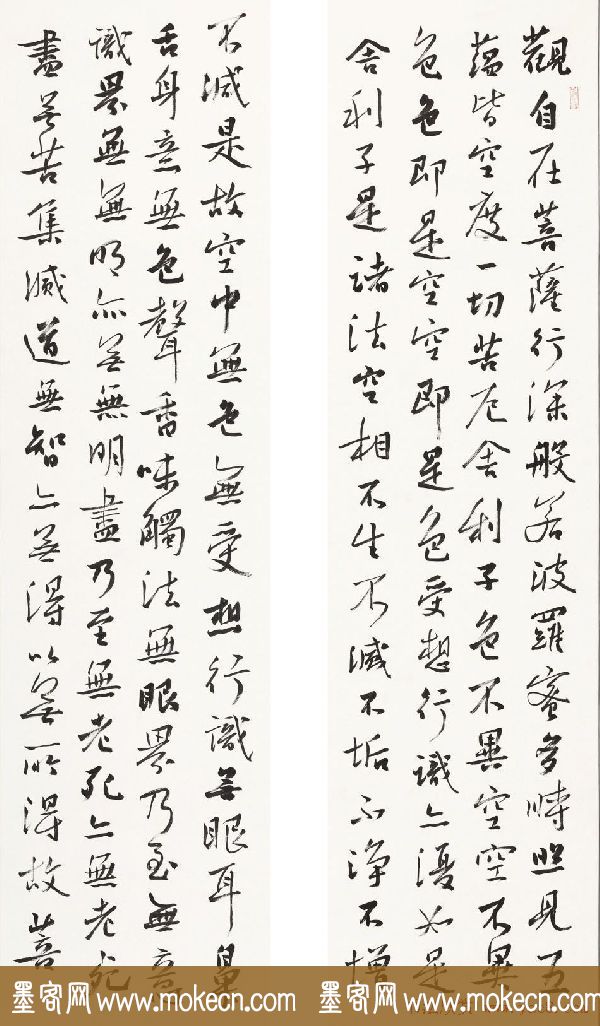 觀自在菩薩行深般若波羅蜜多時照見五
蘊皆空度一切苦厄舍利子色不異空空不異
色色即是空空即是色受想行識亦復如是
舍利子是諸法空相不生不滅不垢不淨不增
不減是故空中無色無受想行識無眼耳鼻
舌身意無色聲香味觸法無眼界乃至無意
識界無無明亦無無明盡乃至無老死亦無老死
盡無苦集滅道無智亦無得以無所得故菩
墨客网 www.mokecn.com 墨客网 www.mokecn.com